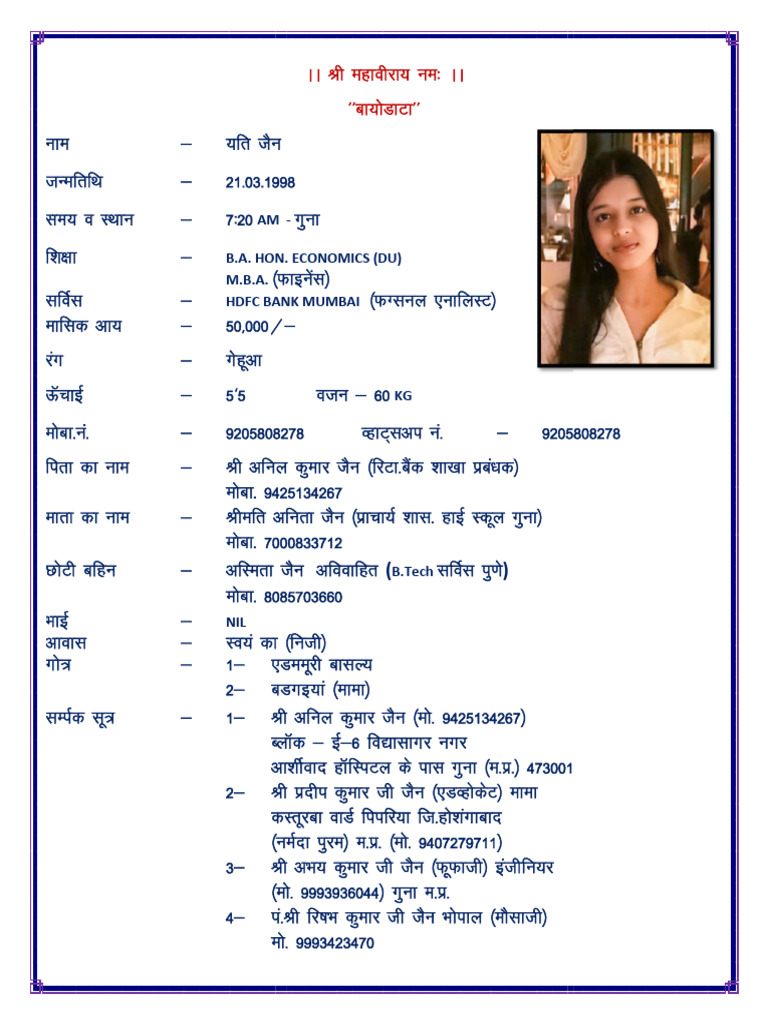 ।। श्री महावीराय नमः ।।
"बायोडाटा"
नाम – यति जैन
जन्मतिथि – 21.03.1998
समय व स्थान – 7:20 AM - गुना
शिक्षा – B.A. HON. ECONOMICS (DU)
M.B.A. (फाइनेंस)
सर्विस – HDFC BANK MUMBAI (फग्सनल एनालिस्ट)
मासिक आय – 50,000/–
रंग – गेहूआ
ऊॅचाई – 5'5 वजन – 60 KG
मोबा.नं. – 9205808278 व्हाट्सअप नं. – 9205808278
पिता का नाम – श्री अनिल कुमार जैन (रिटा.बैंक शाखा प्रबंधक)
मोबा. 9425134267
माता का नाम – श्रीमति अनिता जैन (प्राचार्य शास. हाई स्कूल गुना)
मोबा. 7000833712
छोटी बहिन – अस्मिता जैन अविवाहित (B.Tech सर्विस पुणे)
मोबा. 8085703660
भाई – NIL
आवास – स्वयं का (निजी)
गोत्र – 1– एडममूरी बासल्य
2– बडगइयां (मामा)
सर्म्पक सूत्र – 1– श्री अनिल कुमार जैन (मो. 9425134267)
ब्लॉक – ई–6 विद्यासागर नगर
आर्शीवाद हॉस्पिटल के पास गुना (म.प्र.) 473001
2– श्री प्रदीप कुमार जी जैन (एडव्होकेट) मामा
कस्तूरबा वार्ड पिपरिया जि.होशंगाबाद
(नर्मदा पुरम) म.प्र. (मो. 9407279711)
3– श्री अभय कुमार जी जैन (फूफाजी) इंजीनियर
(मो. 9993936044) गुना म.प्र.
4– पं.श्री रिषभ कुमार जी जैन भोपाल (मौसाजी)
मो. 9993423470